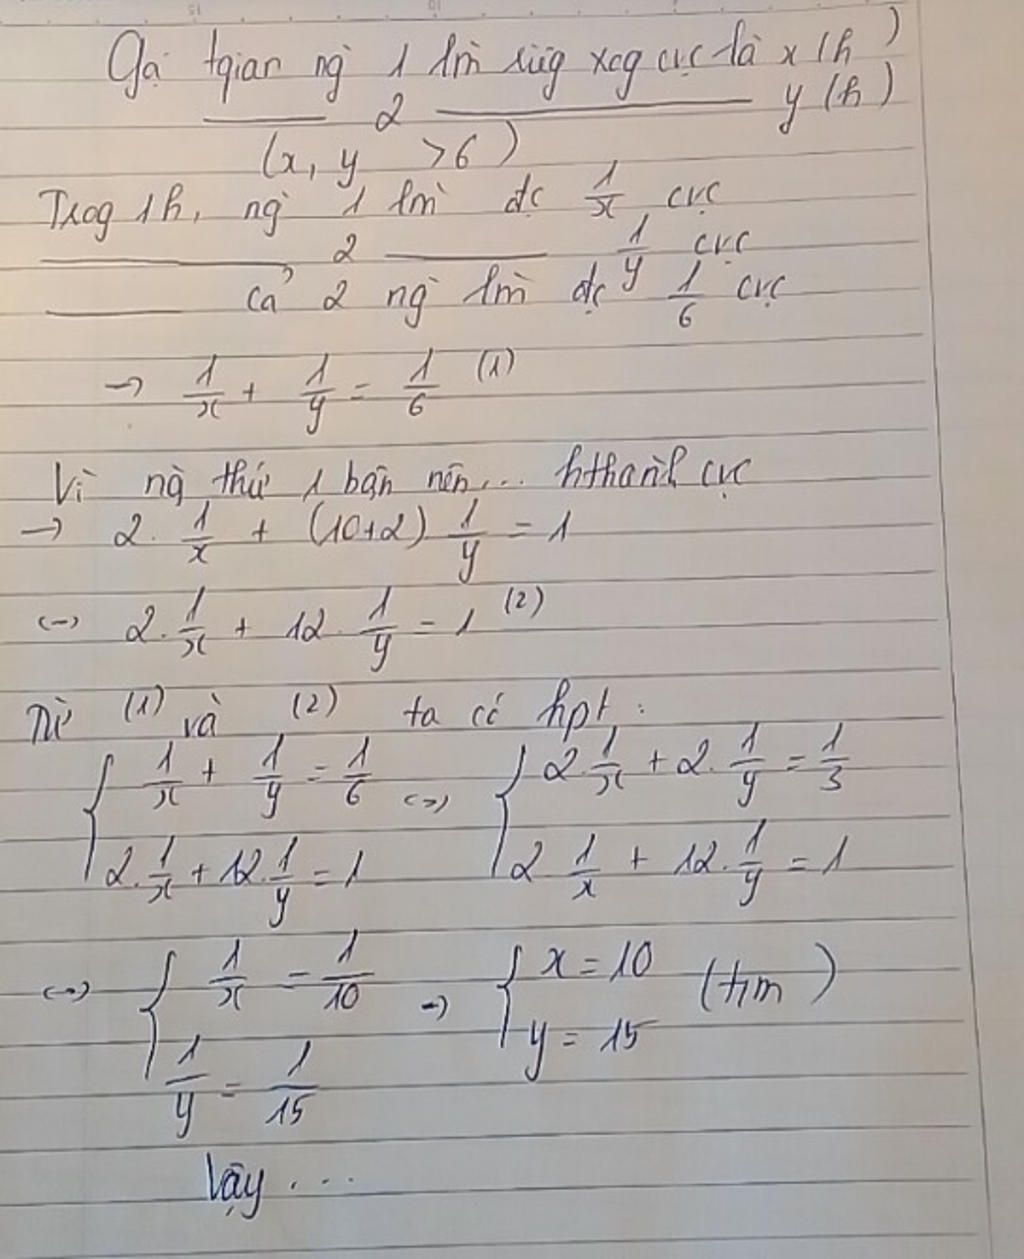 Gọi tgian ng` 1 lm` riêg xog cvc là x (h)
2 y (h)
(x, y > 6)
Trog 1h, ng` 1 lm` đc 1/x cvc
2 1/y cvc
cả 2 ng` lm` đc 1/6 cvc
→ 1/x + 1/y = 1/6 (1)
Vì ng` thứ 1 bận nên... hthành cvc
→ 2. 1/x + (10+2) 1/y = 1
<-> 2. 1/x + 12. 1/y = 1 (2)
Từ (1) và (2) ta có hpt:
{ 1/x + 1/y = 1/6 <=> { 2. 1/x + 2. 1/y = 1/3
2. 1/x + 12. 1/y = 1 2 1/x + 12. 1/y = 1
<=> { 1/x = 1/10 → { x = 10 (t/m)
1/y = 1/15 y = 15
Vậy ...